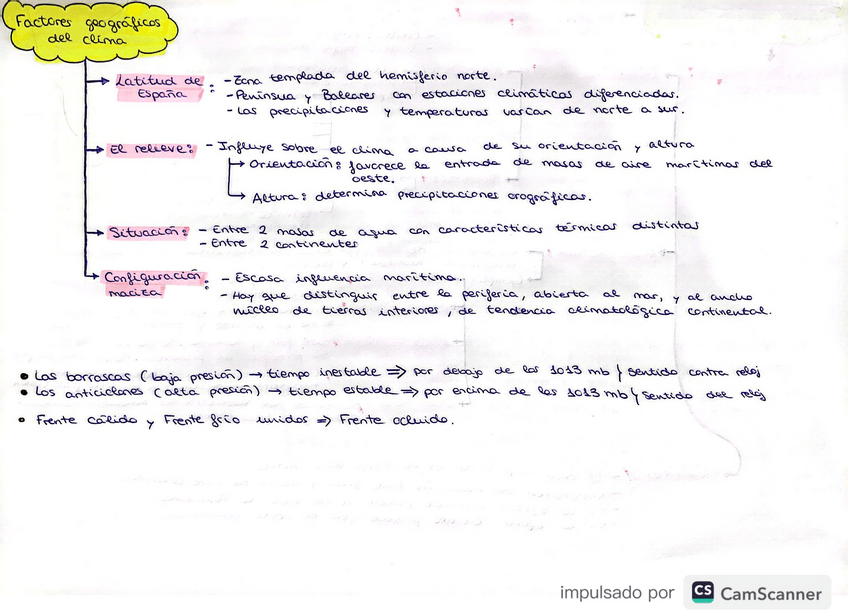 Factores geográficos
del clima
Latitud de
España :
- Zona templada del hemisferio norte.
- Penínsua y Baleares con estaciones climáticas diferenciadas.
- Las precipitaciones y temperaturas varían de norte a sur.
El relieve: - Influye sobre el clima a causa de su orientación y altura
Orientación: favorece la entrada de masas de aire marítimas del
oeste.
Altura: determina precipitaciones orográficas.
Situación: - Entre 2 masas de agua con características térmicas distintas
- Entre 2 continentes
Configuración
maciza :
- Escasa influencia marítima.
- Hay que distinguir entre la periferia, abierta al mar, y al ancho
núcleo de tierras interiores, de tendencia climatológica continental.
• Las borrascas (baja presión) → tiempo inestable => por debajo de los 1013 mb y sentido contra reloj
• Los anticiclones (alta presión) → tiempo estable => por encima de los 1013 mb y sentido del reloj
• Frente cálido y Frente frío unidos => Frente ocluido.
impulsado por CS CamScanner